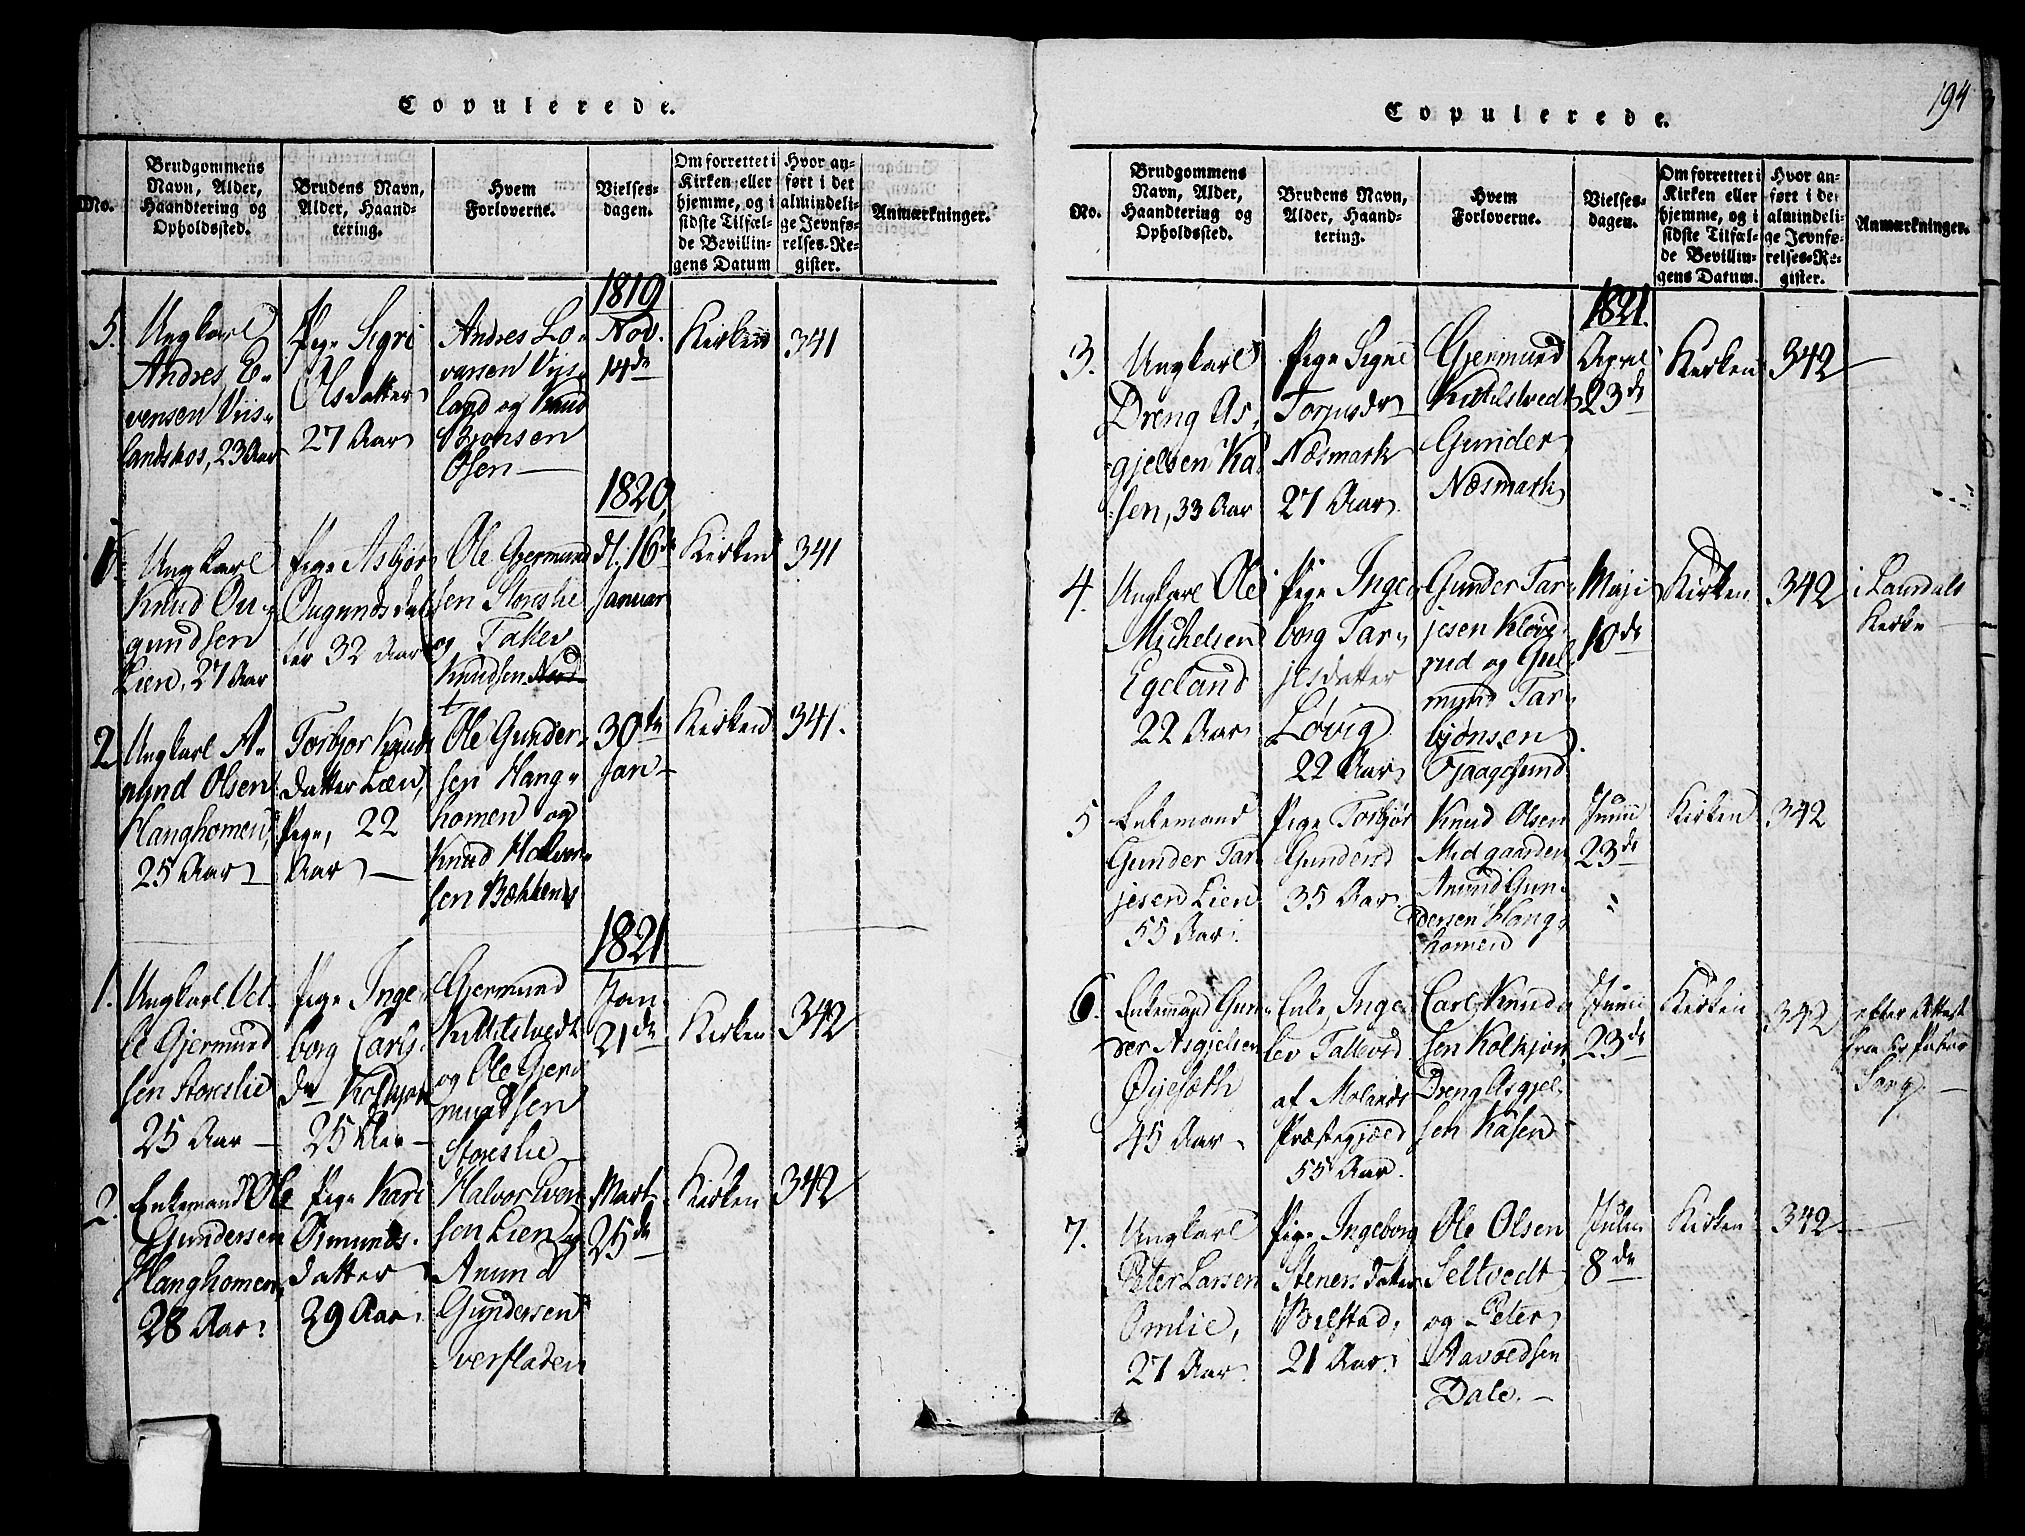 Copulerede.
No.
Brudgommens
Navn, Alder,
Haandtering og
Opholdssted.
Brudens Navn,
Alder, Haand-
tering.
Hvem
Forloverne.
Vielses-
dagen.
Om forrettet i
Kirken eller
hjemme, og i
sidste Tilfæl-
de Bevillin-
gens Datum
Hvor an-
ført i det
almindeli-
ge Jevnfø-
relses-Re-
gister.
Anmærkninger.
1819
5.
Ungkarl
Andres E-
vensen Viis-
landshos, 23 Aar
Pige Sigri
Olsdatter
27 Aar
Andres Lo-
varsen Viis-
land og Knud
Bjonsen
Osen
Nov.
14de
Kirken
341
1820,
1.
Ungkarl
Knud Ou-
gundsen
Lien, 27 Aar
Pige Asbjor
Ougunds dat
ter 32 Aar
Ole Gjermund
sen Storeslie
og Tallev
Knudsen
d. 16de
Januar
Kirken
341
2
Ungkarl A-
nund Olsen
Hanghomen,
25 Aar
Torbjor Knuds
datter Lien,
Pige, 22
Aar
Ole Gunder-
sen Hang-
homen og
Knud Halvor-
sen Bækkenes
30te
Jan
Kirken
341.
1821
1.
Ungkarl Vet-
le Gjermund
sen Storeslie
25 Aar
Pige Inge-
borg Carls-
dr Kolkjøn
25 Aar
Gjermund
Kittelsvedt
og Ole Gjer-
mundsen
Storeslie
Jan.
21de
Kirken
342
2.
Enkemand Ole
Gundersen
Hanghomen,
28 Aar.
Pige Kari
Omunds-
datter
29 Aar.
Halvor Even
sen Lien og
Anund
Gundersen
verfladen
Mart.
25de
Kirken
342
194
Copulerede.
No.
Brudgommens
Navn, Alder,
Haandtering og
Opholdssted.
Brudens Navn,
Alder, Haand-
tering.
Hvem
Forloverne.
Vielses-
dagen.
Om forrettet i
Kirken eller
hjemme, og i
sidste Tilfæl-
de Bevillin-
gens Datum.
Hvor an-
ført i det
almindeli-
ge Jevnfø-
relses-Re-
gister.
Anmærkninger.
1821.
3.
Ungkarl
Dreng As-
gjelsen Kå-
sen, 33 Aar
Pige Signe
Torjusdr
Næsmark
27 Aar
Gjermund
Kittilsvedt
Gunder
Næsmark
April
23de
Kirken
342
4.
Ungkarl Ole
Michelsen
Egeland
22 Aar
Pige Inge-
borg Tar-
jesdatter
Løvig
22 Aar
Gunder Tar-
jesen Klev-
rud og Gul-
mund Tar-
bjønsen
Maji
10de
Kirken
342
i Laurdals
Kirke
5
Enkemand
Gunder Tar-
jesen Lien
55 Aar.
Pige Torbjør
Gundersd
35 Aar.
Knud Olsen
Midgaarden
Anund Gun-
dersen Hang-
homen
Junii
23de
Kirken
342
6.
Enkemand Gun-
der Asgjelsen
Øyesæth
45 Aar
Enke Inge-
lev Tallevsd
af Molands
Præstegjæld
55 Aar.
Carl Knud-
sen Kolkjøn
Dreng Asgjel-
sen Kåsen
Junii
23de
Kirken
342
efter Attest
fra Hr Pastor
7.
Ungkarl
Peter Larsen
Omlie,
27 Aar.
Pige Ingeborg
Steners datter
Bælstad,
21 Aar.
Ole Olsen
Seltvedt
og Peter
Aavoldsen
Dale.
Julii
8de
Kirken
342